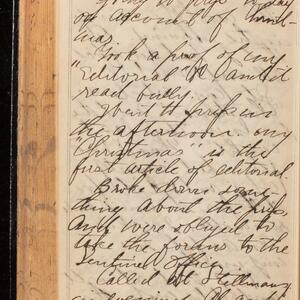 going to press to-day
on account of
mas.
Took a proof of my
"Editorial" and it
read bully.
Went to press in
the afternoon. my
"Christmas" is the
first article of editorial.
Broke down some-
thing about the press
and were obliged to
take the forms to the
Sentinel Office.
Called at Stellmans